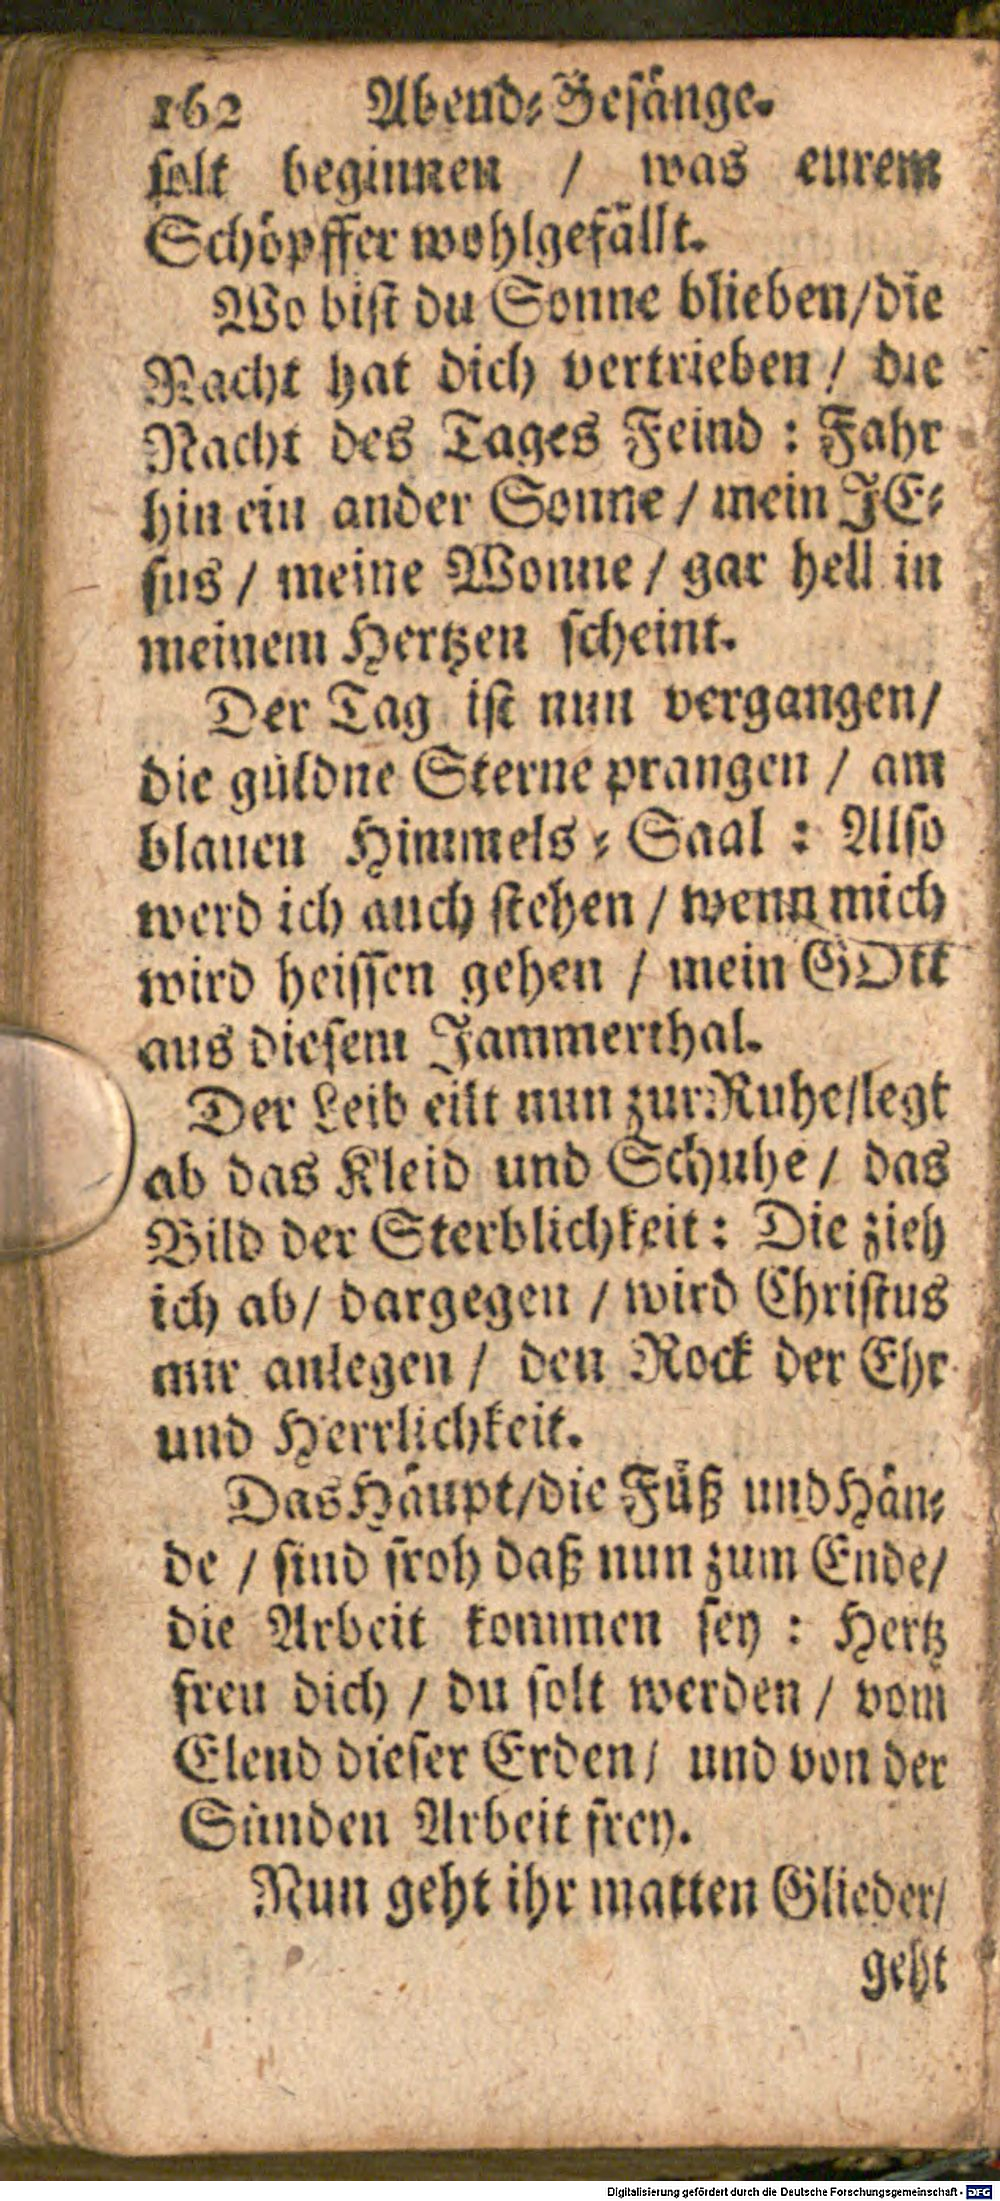 162 Abend-Gesänge.
solt beginnen / was eurem
Schöpffer wohlgefällt.
Wo bist du Sonne blieben/die
Nacht hat dich vertrieben / die
Nacht des Tages Feind : Fahr
hin ein ander Sonne / mein JE-
sus / meine Wonne / gar hell in
meinem Hertzen scheint.
Der Tag ist nun vergangen/
die güldne Sterne prangen / am
blauen Himmels-Saal : Also
werd ich auch stehen / wenn mich
wird heissen gehen / mein GOtt
aus diesem Jammerthal.
Der Leib eilt nun zur Ruhe/legt
ab das Kleid und Schuhe / das
Bild der Sterblichkeit: Die zieh
ich ab/ dargegen / wird Christus
mir anlegen / den Rock der Ehr
und Herrlichkeit.
Das Häupt/die Füß und Hän-
de / sind froh daß nun zum Ende/
die Arbeit kommen sey : Hertz
freu dich / du solt werden / vom
Elend dieser Erden/ und von der
Sünden Arbeit frey.
Nun geht ihr matten Glieder/
geht
Digitalisierung gefördert durch die Deutsche Forschungsgemeinschaft - DFG